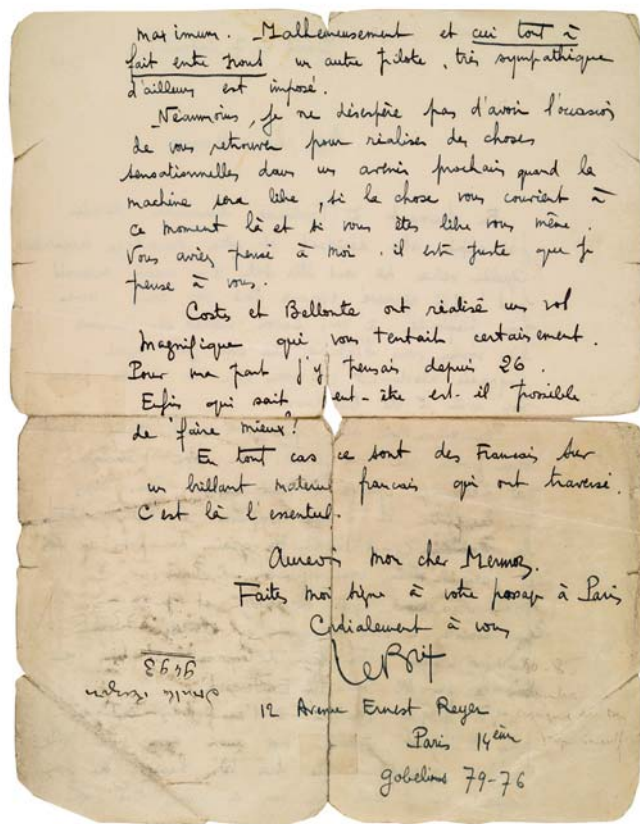 maximum. Malheureusement et ceci tout à
fait entre nous un autre pilote, très sympathique
d'ailleurs est imposé.
Néanmoins, je ne désespère pas d'avoir l'occasion
de vous retrouver pour réaliser des choses
sensationnelles dans un avenir prochain quand la
machine sera libre, si la chose vous convient à
ce moment là et si vous êtes libre vous même.
Vous aviez pensé à moi. il est juste que je
pense à vous.
Costes et Bellonte ont réalisé un vol
magnifique qui vous tentait certainement.
Pour ma part j'y pensais depuis 26.
Enfin qui sait eut-être est-il possible
de faire mieux?
En tout cas ce sont des Francais sur
un brillant materiel francais qui ont traversé.
C'est là l'essentiel.
Aurevoir mon cher Mermoz.
Faites moi signe à votre passage à Paris
Cordialement à vous
Le Brix
12 Avenue Ernest Reyer
Paris 14ème
gobelins 79-76
9493